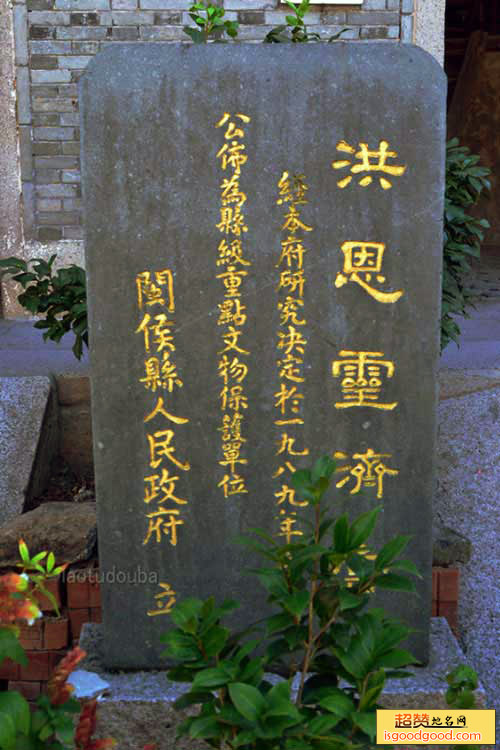 洪恩靈濟
經本府研究決定於一九八九年
公佈為縣級重點文物保護單位
閩侯縣人民政府 立
laotudouba
超赞地名网
isgoodgood.com